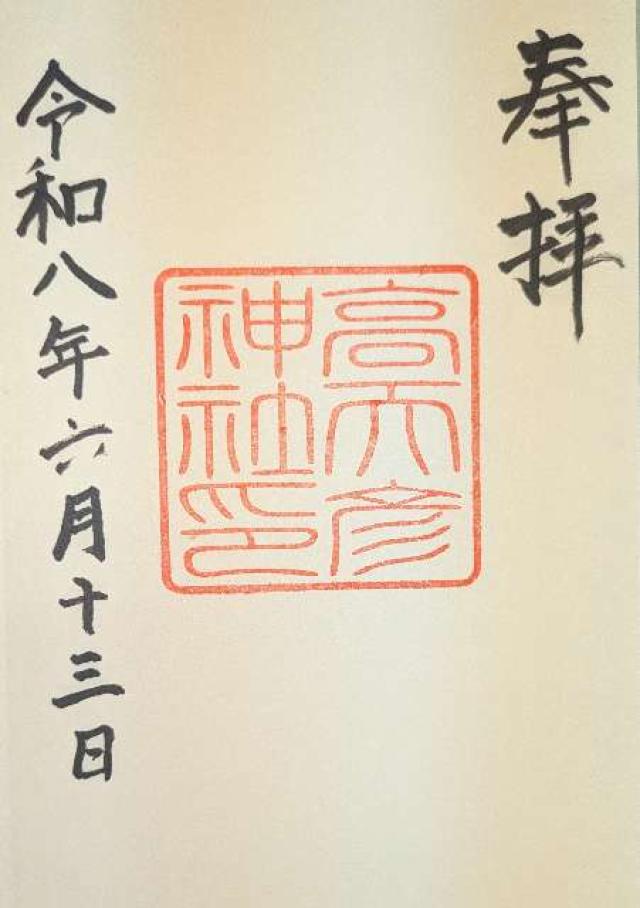 奉拝
高天彦
神社印
令和八年六月十三日